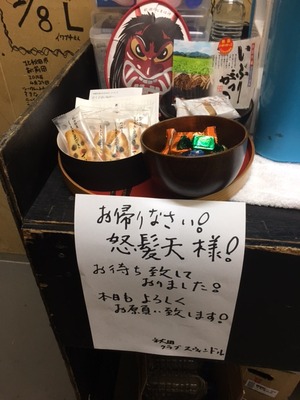 7/8 L
いぶり
がっこ
お帰りなさい!
怒髪天様!
お待ち致して
おりました!
本日もよろしく
お願い致します!
秋田
クラブスウィンドル